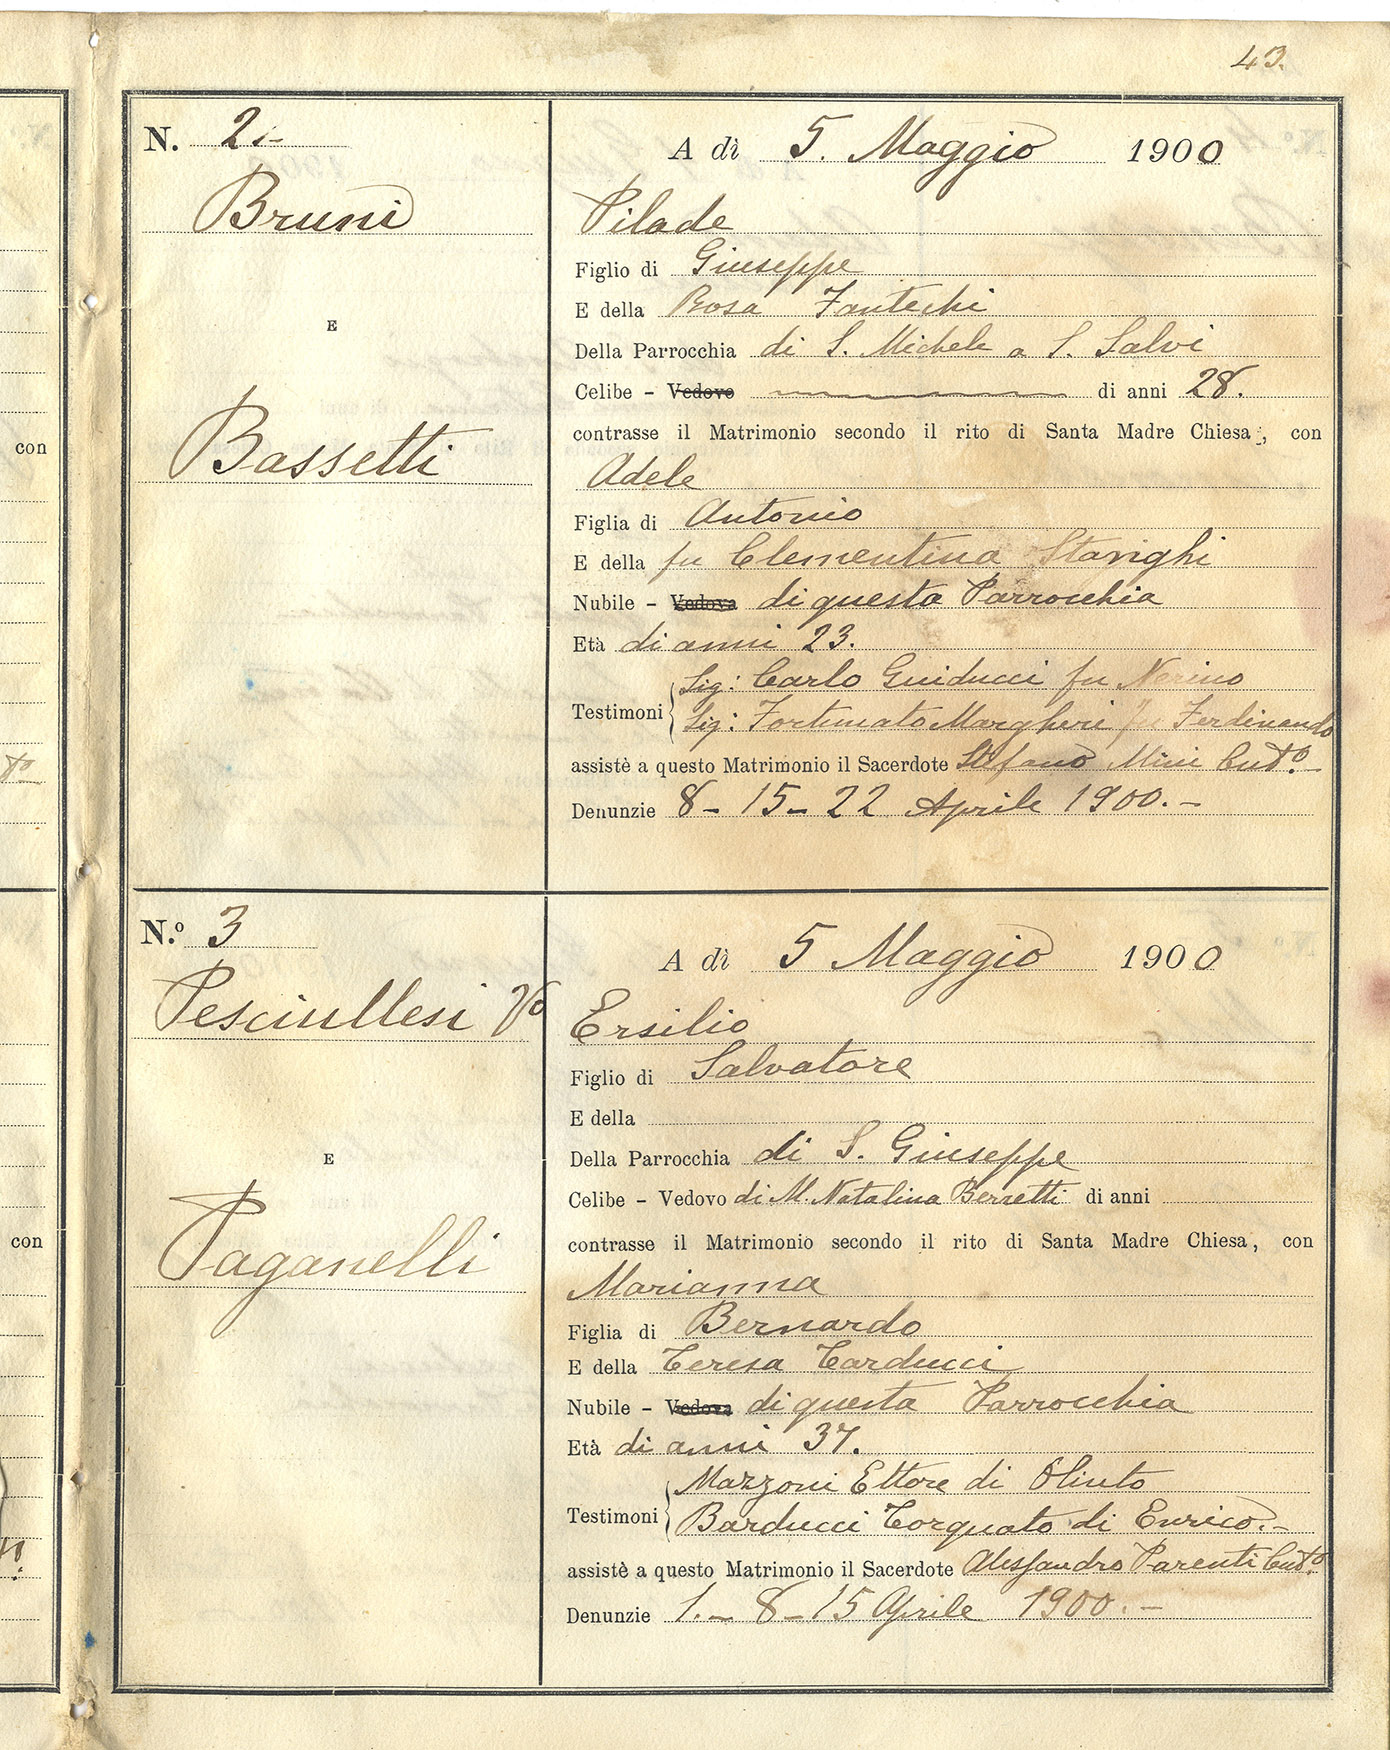 43.
N. 2.-
Bruni
E
Bassetti
A dì 5. Maggio 1900
Pilade
Figlio di Giuseppe
E della Rosa Fantechi
Della Parrocchia di S. Michele a S. Salvi
Celibe - Vedovo di anni 28.
contrasse il Matrimonio secondo il rito di Santa Madre Chiesa, con
Adele
Figlia di Antonio
E della fu Clementina Starighi
Nubile - Vedova di questa Parrocchia
Età di anni 23.
Testimoni
Sig: Carlo Guiducci fu Nerino
Sig: Fortunato Margheri fu Ferdinando
assistè a questo Matrimonio il Sacerdote Stefano Mini Curto.
Denunzie 8- 15- 22 Aprile 1900.-
N.º 3
Pesciullesi Vo
E
Paganelli
A dì 5 Maggio 1900
Ersilio
Figlio di Salvatore
E della
Della Parrocchia di S. Giuseppe
Celibe - Vedovo di M. Natalina Berretti di anni
contrasse il Matrimonio secondo il rito di Santa Madre Chiesa, con
Marianna
Figlia di Bernardo
E della Teresa Carducci
Nubile - Vedova di questa Parrocchia
Età di anni 37.
Testimoni
Mazzoni Ettore di Olinto
Barducci Torquato di Enrico.-
assistè a questo Matrimonio il Sacerdote Alessandro Parenti Curto.
Denunzie 1.- 8-15 Aprile 1900.-
con
con